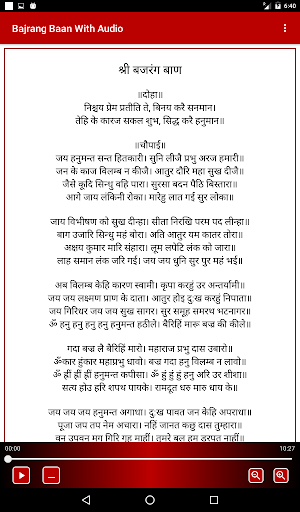 6:40
Bajrang Baan With Audio
श्री बजरंग बाण
॥दोहा॥
निश्चय प्रेम प्रतीति ते, बिनय करै सनमान।
तेहि के कारज सकल शुभ, सिद्ध करै हनुमान॥
॥चौपाई॥
जय हनुमन्त सन्त हितकारी। सुनि लीजै प्रभु अरज हमारी॥
जन के काज विलम्ब न कीजै। आतुर दौरि महा सुख दीजै॥
जैसे कूदि सिन्धु वहि पारा। सुरसा बदन पैठि बिस्तारा॥
आगे जाय लंकिनी रोका। मारेहु लात गई सुर लोका॥
जाय विभीषण को सुख दीन्हा। सीता निरखि परम पद लीन्हा॥
बाग उजारि सिन्धु महं बोरा। अति आतुर यम कातर तोरा॥
अक्षय कुमार मारि संहारा। लूम लपेटि लंक को जारा॥
लाह समान लंक जरि गई। जय जय धुनि सुर पुर महं भई॥
अब विलम्ब केहि कारण स्वामी। कृपा करहुं उर अन्तर्यामी॥
जय जय लक्ष्मण प्राण के दाता। आतुर होइ दुःख करहुं निपाता॥
जय गिरिधर जय जय सुख सागर। सुर समूह समरथ भटनागर॥
ॐ हनु हनु हनु हनु हनुमन्त हठीले। बैरिहिं मारू बज्र की कीले॥
गदा बज्र लै बैरिहिं मारो। महाराज प्रभु दास उबारो॥
ॐकार हुंकार महाप्रभु धावो। बज्र गदा हनु विलम्ब न लावो॥
ॐ ह्रीं ह्रीं ह्रीं हनुमन्त कपीसा। ॐ हुं हुं हुं हनु अरि उर शीशा॥
सत्य होउ हरि शपथ पायके। रामदूत धरु मारु धाय के॥
जय जय जय हनुमन्त अगाधा। दुःख पावत जन केहि अपराधा॥
पूजा जप तप नेम अचारा। नहिं जानत कछु दास तुम्हारा॥
बन उपवन मग गिरि गृह माहीं। तुमरे बल हम डरपत नाहीं॥
00:00
10:27